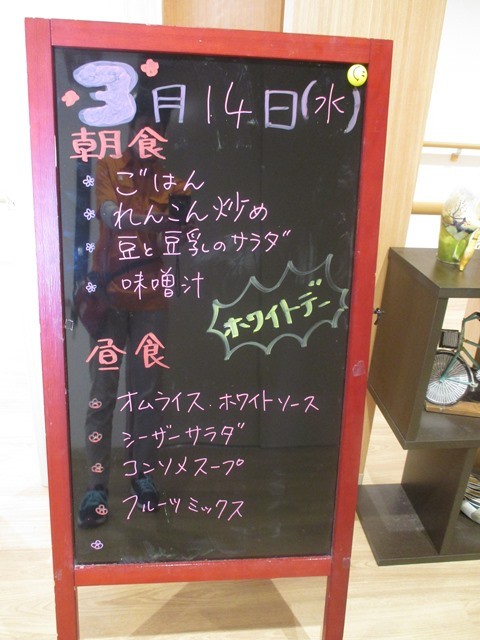 3月14日(水)
朝食
ごはん
れんこん炒め
豆と豆乳のサラダ
味噌汁
ホワイトデー
昼食
オムライス.ホワイトソース
シーザーサラダ
コンソメスープ
フルーツミックス